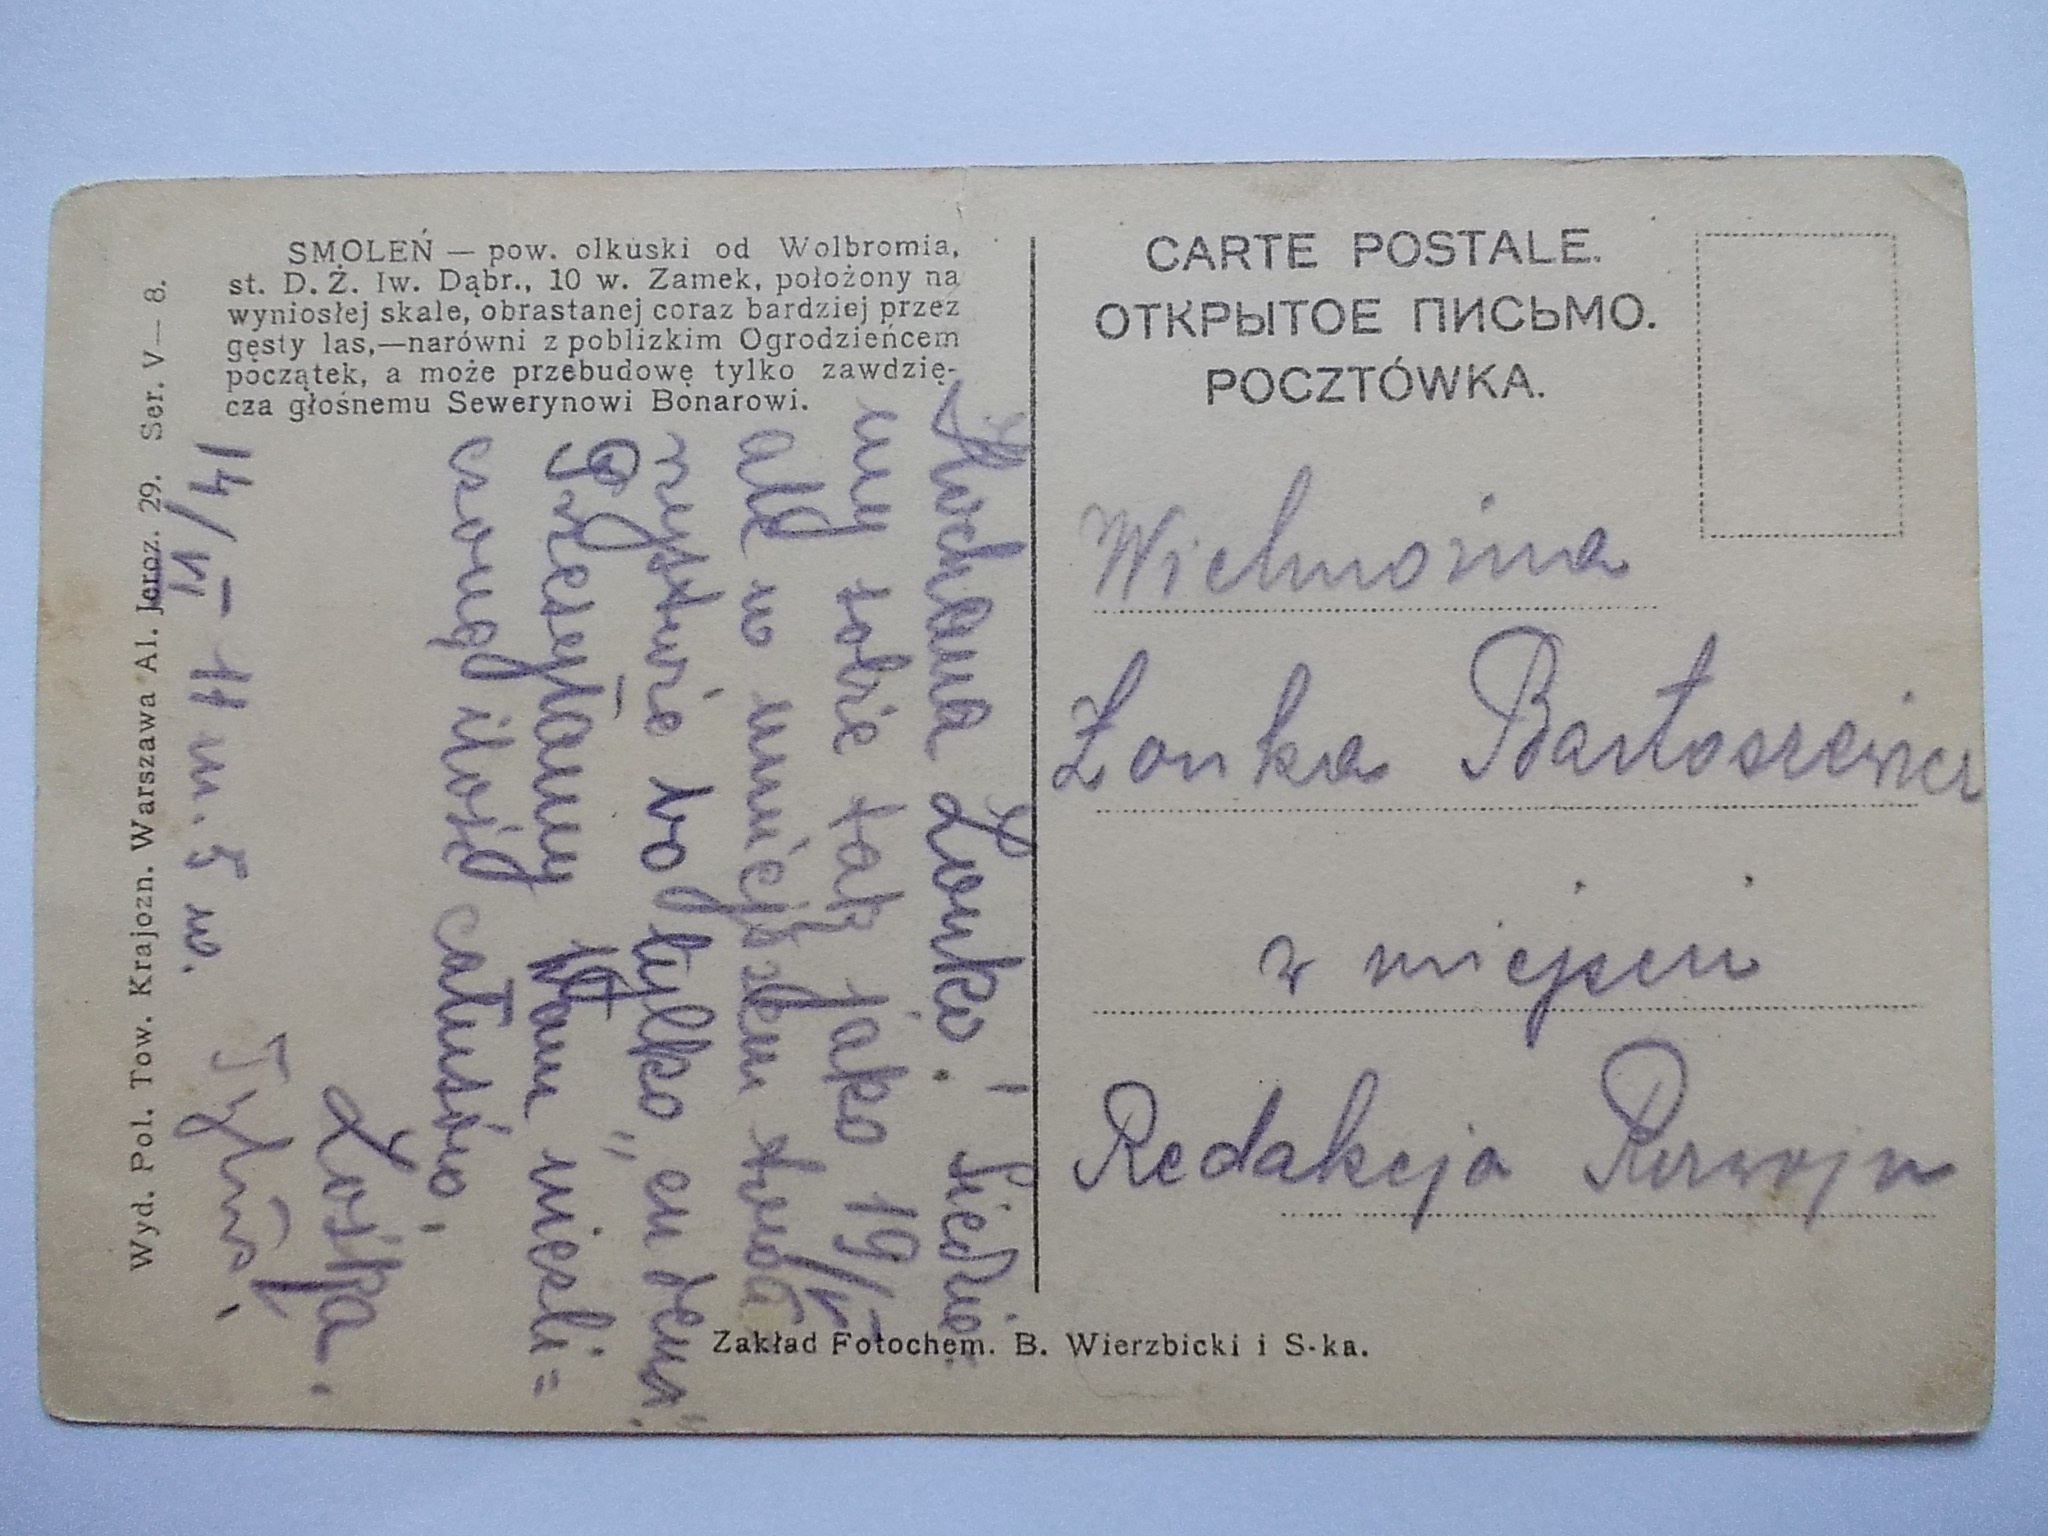 SMOLEŃ — pow. olkuski od Wolbromia,
st. D. Ż. Iw. Dąbr., 10 w. Zamek, położony na
wyniosłej skale, obrastanej coraz bardziej przez
gęsty las,—narówni z poblizkim Ogrodzieńcem
początek, a może przebudowę tylko zawdzię-
cza głośnemu Sewerynowi Bonarowi.
Wyd. Pol. Tow. Krajozn. Warszawa Al. Jeroz. 29. Ser. V—8.
Kochana Zonko! Siedzi
my sobie tak jako 19/V
ale w mniejszem
tylko, en deux"
Przesyłamy Wam niesli=
czoną ilość całusów,
Zośka.
14/VI – 11 m. 5 w.
CARTE POSTALE.
ОТКРЫТОЕ ПИСЬМО.
POCZTÓWKA.
Wielmożna
Zonka Bartoszewicz
w miejscu
Redakcja Rozwoju
Zakład Fotochem. B. Wierzbicki i S-ka.